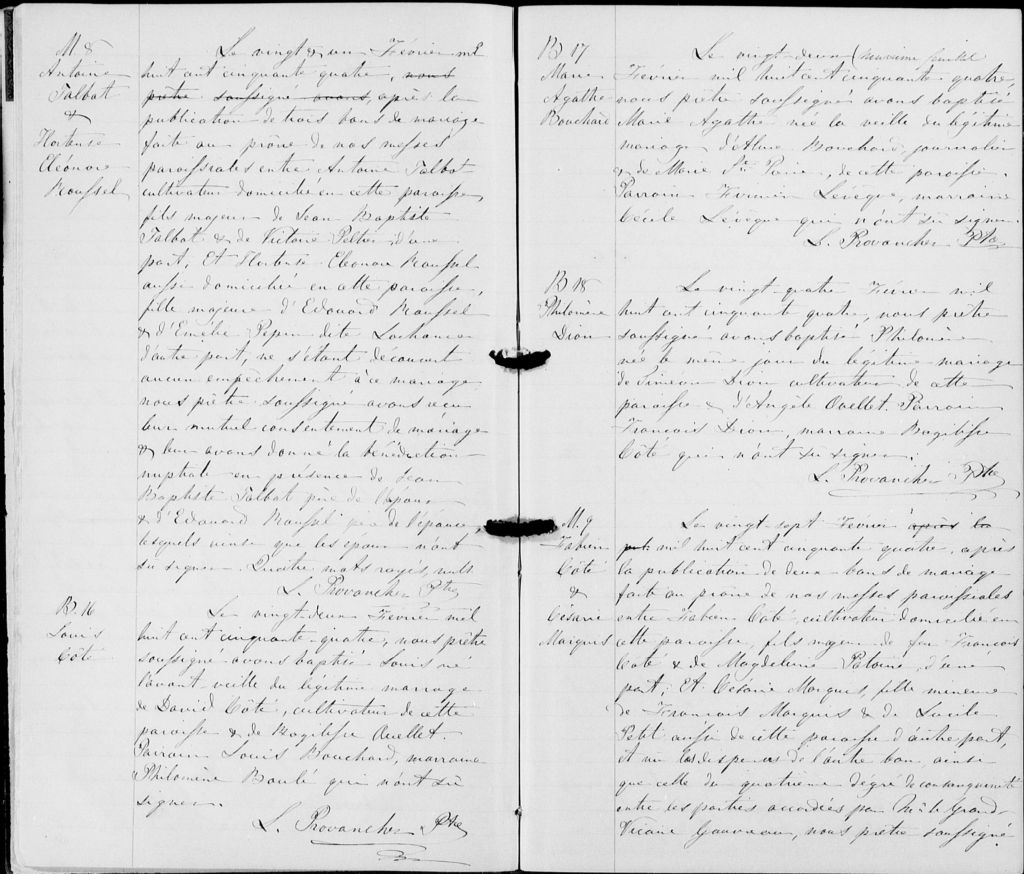 M 8
Antoine
Talbot
&
Hortense
Eléonore
Roussel
Le vingt & un Février mil
huit cent cinquante quatre, nous
prêtre soussigné avons, après la
publication de trois bans de mariage
faite au prône de nos messes
paroissiales entre Antoine Talbot
cultivateur domicilié en cette paroisse,
fils majeur de Jean Baptiste
Talbot & de Victoire Peltier d'une
part, Et Hortense Eléonore Roussel
aussi domiciliée en cette paroisse,
fille majeure d'Edouard Roussel
& d'Emélie Pepin dite Lachance
d'autre part, ne s'étant découvert
aucun empêchement à ce mariage
nous prêtre soussigné avons reçu
leur mutuel consentement de mariage
& leur avons donné la bénédiction
nuptiale en présence de Jean
Baptiste Talbot père de l'époux
& d'Edouard Roussel père de l'épouse,
lesquels ainsi que les époux n'ont
su signer. Quatre mots rayés nuls
L. Provancher Ptre
B. 16
Louis
Côté
Le vingt-deux Février mil
huit cent cinquante-quatre, nous prêtre
soussigné avons baptisé Louis né
l'avant-veille du légitime mariage
de David Côté, cultivateur de cette
paroisse & de Bazilisse Ouellet.
Parrain Louis Bouchard, marraine
Philomène Boulé qui n'ont su
signer.
L. Provancher Ptre
B 17
Marie
Agathe
Bouchard
Le vingt-deux
Février mil huit cent cinquante quatre,
nous prêtre soussigné avons baptisé
Marie Agathe née la veille du légitime
mariage d' Bouchard, journalier
& de Marie St. Pierre, de cette paroisse.
Parrain Firmin Levêque, marraine
Cécile Levêque qui n'ont su signer.
L. Provancher Ptre
B 18
Philomène
Dion
Le vingt-quatre Février mil
huit cent cinquante quatre, nous prêtre
soussigné avons baptisé Philomène
née le même jour du légitime mariage
de Siméon Dion cultivateur de cette
paroisse & d'Angèle Ouellet. Parrain
François Dion, marraine Bazilisse
Côté qui n'ont su signer.
L. Provancher Ptre
M. 9
Fabien
Côté
&
Césarie
Marquis
Le vingt sept Février après la
pub. mil huit cent cinquante quatre, après
la publication de deux bans de mariage
faite au prône de nos messes paroissiales
entre Fabien Côté, cultivateur domicilié en
cette paroisse, fils majeur de feu François
Coté & de Magdeleine Patoine d'une
part; Et Césarie Marquis, fille mineure
de François Marquis & de Lucile
Petit aussi de cette paroisse d'autre part,
et vu les dispenses de l'autre ban, ainsi
que celle du quatrième dégré de consanguinité
entre les parties accordées par Mr le Grand
Vicaire Gauvreau, nous prêtre soussigné